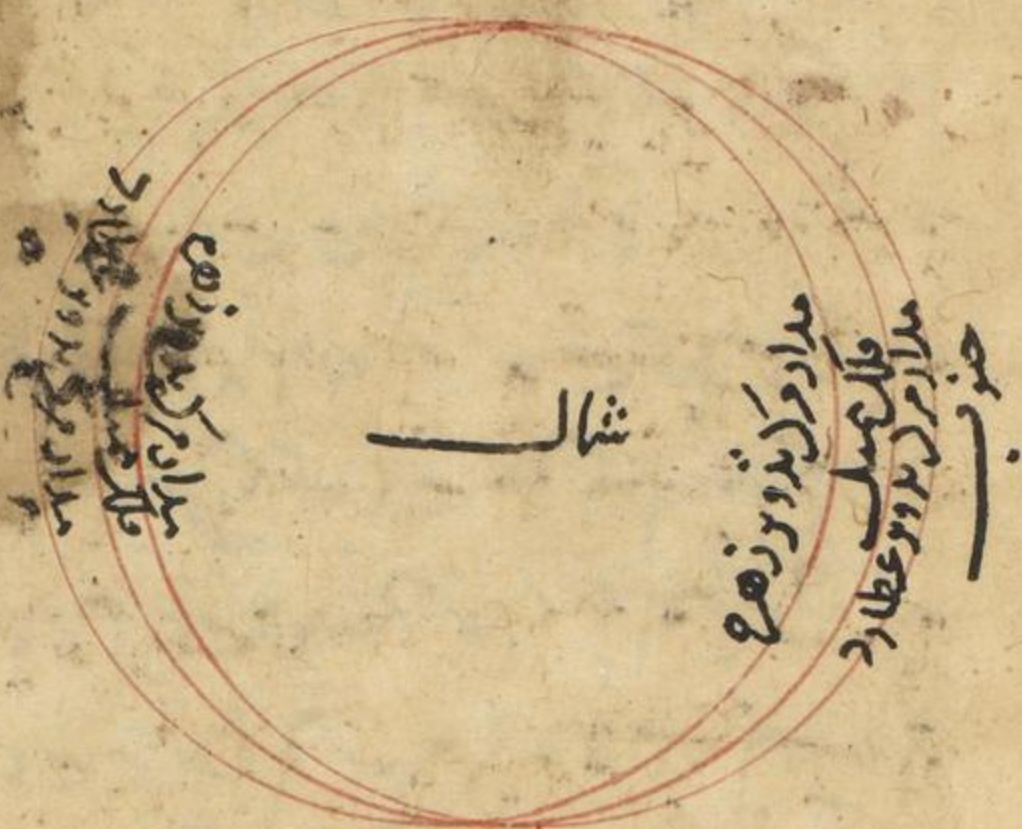 شمال
مدار مرکز تدویر زهره
فلک ممثل
مدار مرکز تدویر عطارد
جنوب
مدار مرکز تدویر زهره
فلک ممثل
مدار مرکز تدویر عطارد